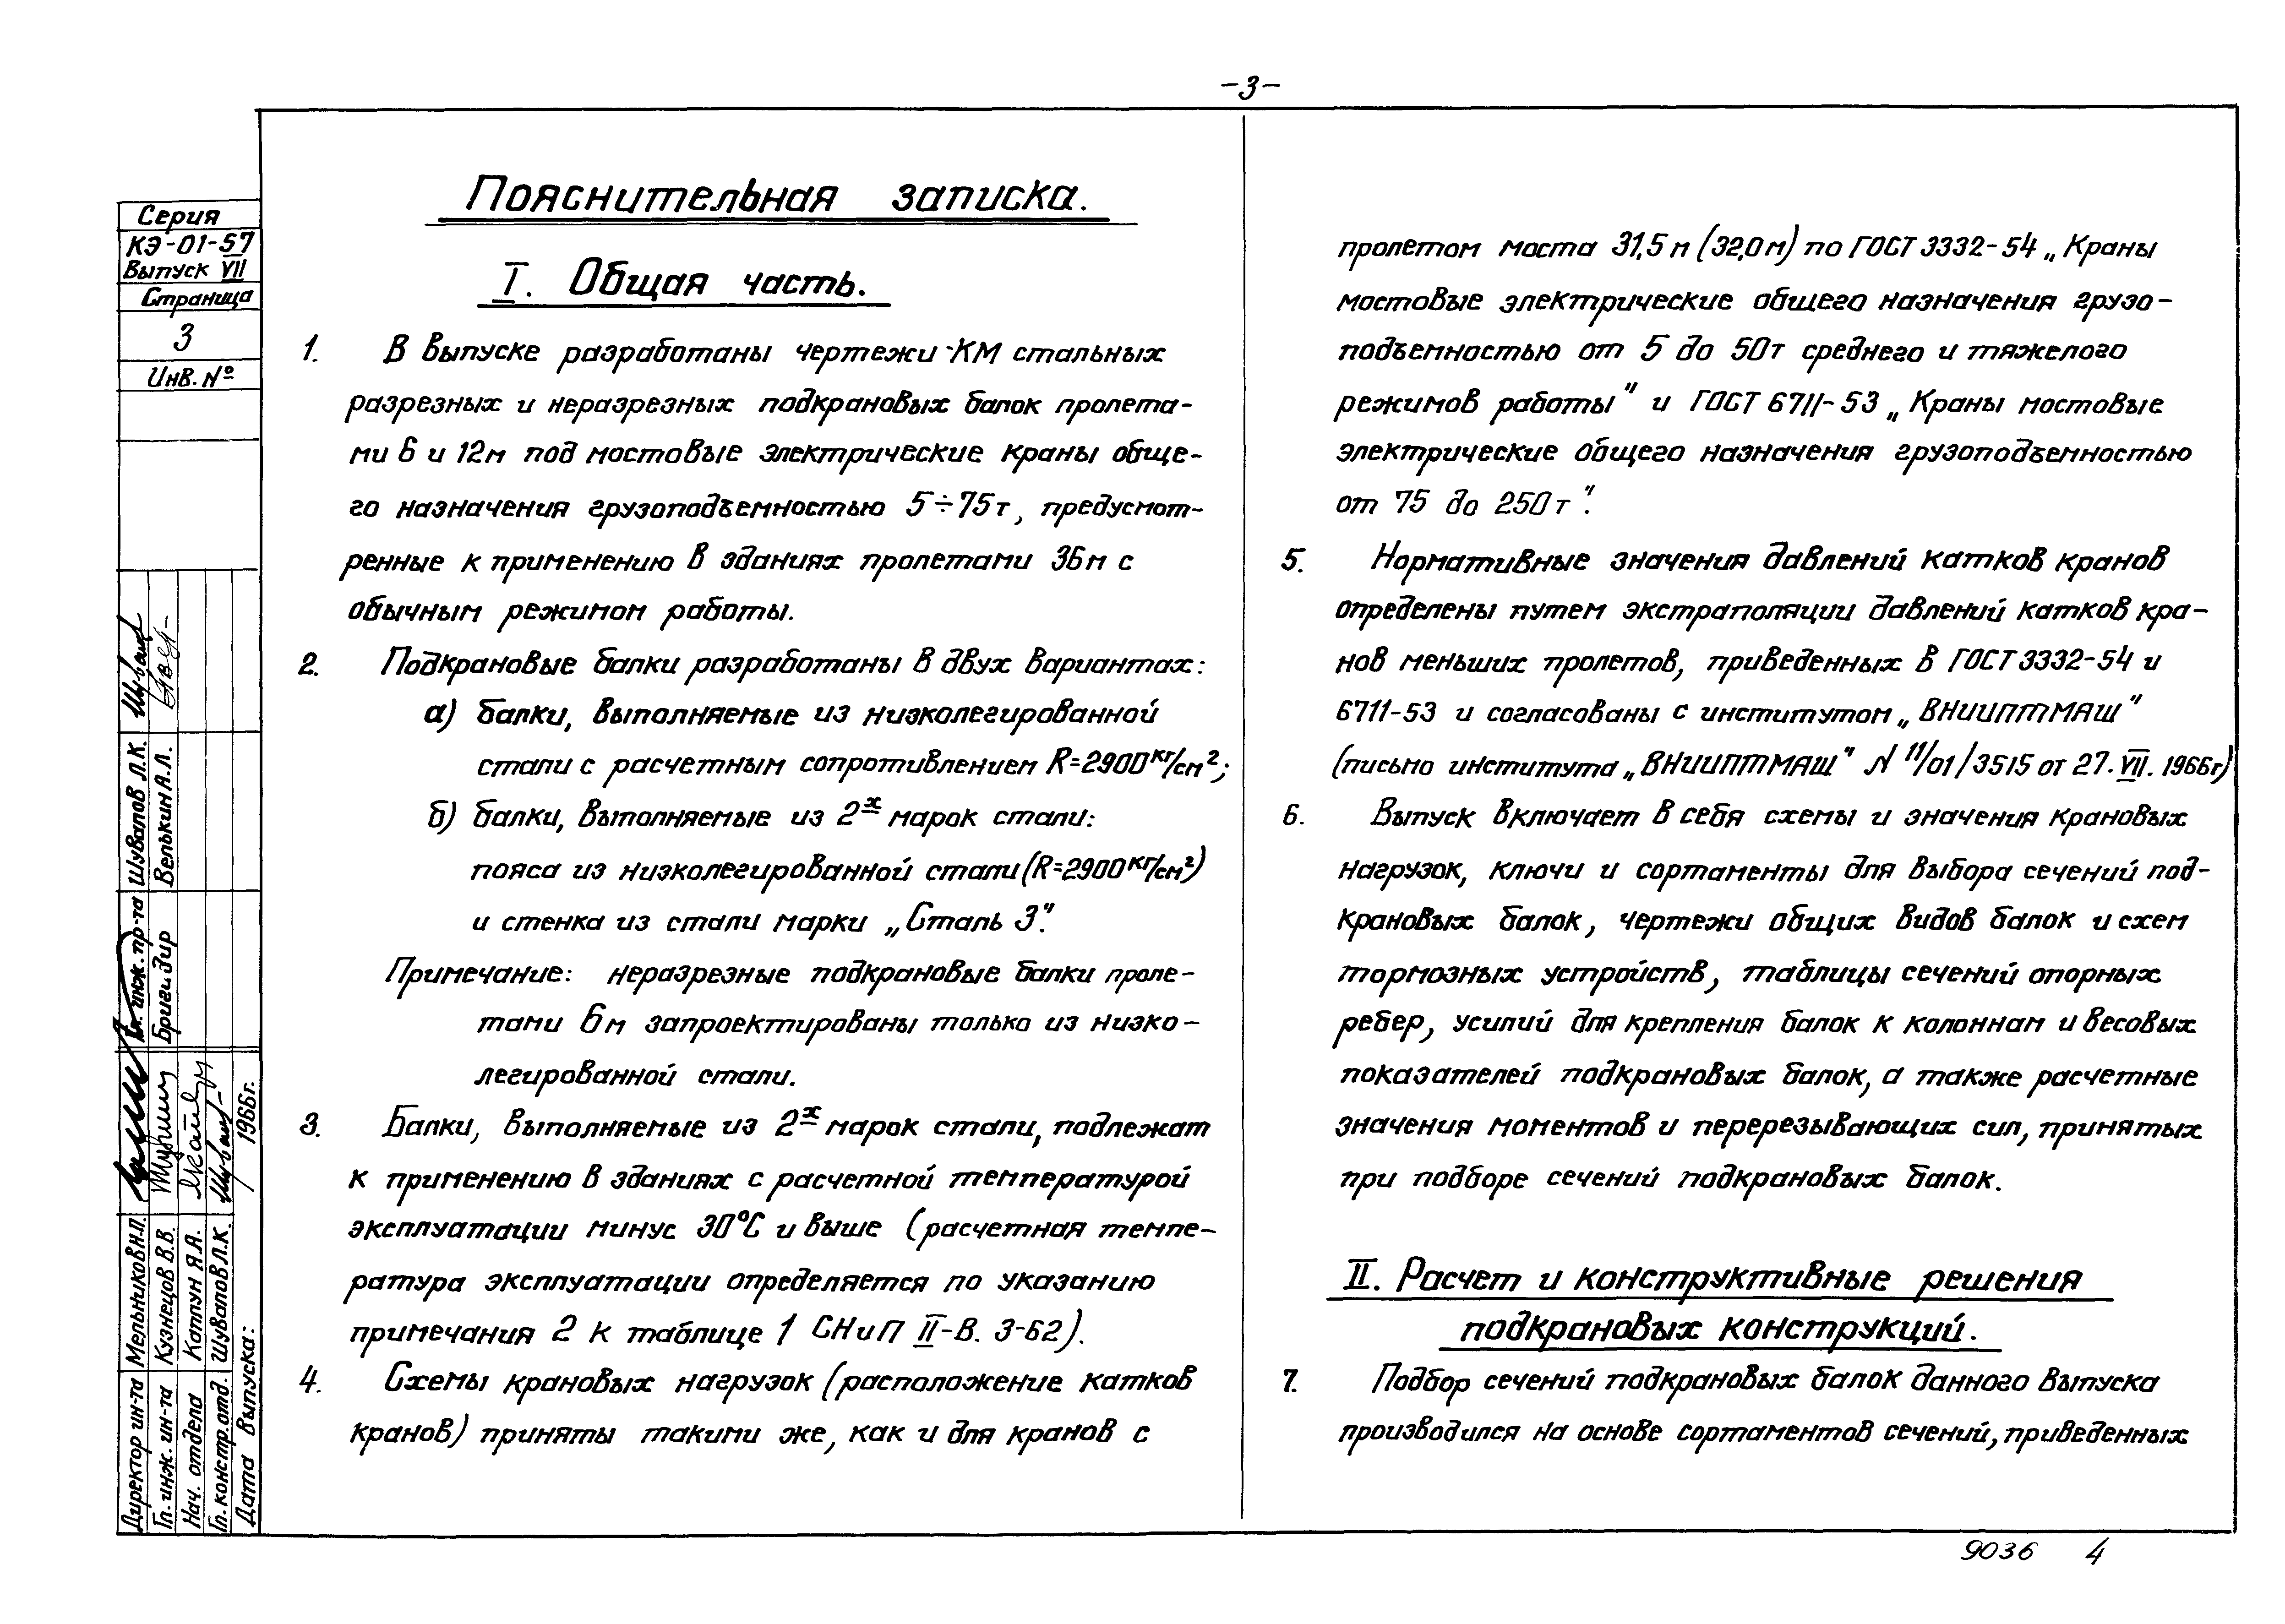 -3-
Серия
КЭ-01-57
Выпуск VII
Страница
3
Инв. №
Директор ин-та Мельников Н.П.
Гл. инж. ин-та Кузнецов В.В.
Нач. отдела Каплун Я.А.
Гл. констр. отд. Шувалов Л.К.
Дата выпуска: 1966г.
Гл. инж. пр-та Шувалов Л.К.
Бригадир Велькин А.Л.
Пояснительная записка.
I. Общая часть.
1. В выпуске разработаны чертежи КМ стальных
разрезных и неразрезных подкрановых балок пролета-
ми 6 и 12м под мостовые электрические краны обще-
го назначения грузоподъемностью 5÷75т, предусмот-
ренные к применению в зданиях пролетами 36м с
обычным режимом работы.
2. Подкрановые балки разработаны в двух вариантах:
а) балки, выполняемые из низколегированной
стали с расчетным сопротивлением R=2900кг/см²;
б) балки, выполняемые из 2х марок стали:
пояса из низколегированной стали (R=2900кг/см²)
и стенка из стали марки „Сталь 3".
Примечание: неразрезные подкрановые балки проле-
тами 6м запроектированы только из низко-
легированной стали.
3. Балки, выполняемые из 2х марок стали, подлежат
к применению в зданиях с расчетной температурой
эксплуатации минус 30°С и выше (расчетная темпе-
ратура эксплуатации определяется по указанию
примечания 2 к таблице 1 СНиП II-В. 3-62).
4. Схемы крановых нагрузок (расположение катков
кранов) приняты такими же, как и для кранов с
пролетом моста 31,5м (32,0м) по ГОСТ 3332-54 „Краны
мостовые электрические общего назначения грузо-
подъемностью от 5 до 50т среднего и тяжелого
режимов работы" и ГОСТ 6711-53 „Краны мостовые
электрические общего назначения грузоподъемностью
от 75 до 250т".
5. Нормативные значения давлений катков кранов
определены путем экстраполяции давлений катков кра-
нов меньших пролетов, приведенных в ГОСТ 3332-54 и
6711-53 и согласованы с институтом „ВНИИПТМАШ"
(письмо института „ВНИИПТМАШ" N 11/01/3515 от 27.VII.1966г)
6. Выпуск включает в себя схемы и значения крановых
нагрузок, ключи и сортаменты для выбора сечений под-
крановых балок, чертежи общих видов балок и схем
тормозных устройств, таблицы сечений опорных
ребер, усилий для крепления балок к колоннам и весовых
показателей подкрановых балок, а также расчетные
значения моментов и перерезывающих сил, принятых
при подборе сечений подкрановых балок.
II. Расчет и конструктивные решения
подкрановых конструкций.
7. Подбор сечений подкрановых балок данного выпуска
производился на основе сортаментов сечений, приведенных
9036 4